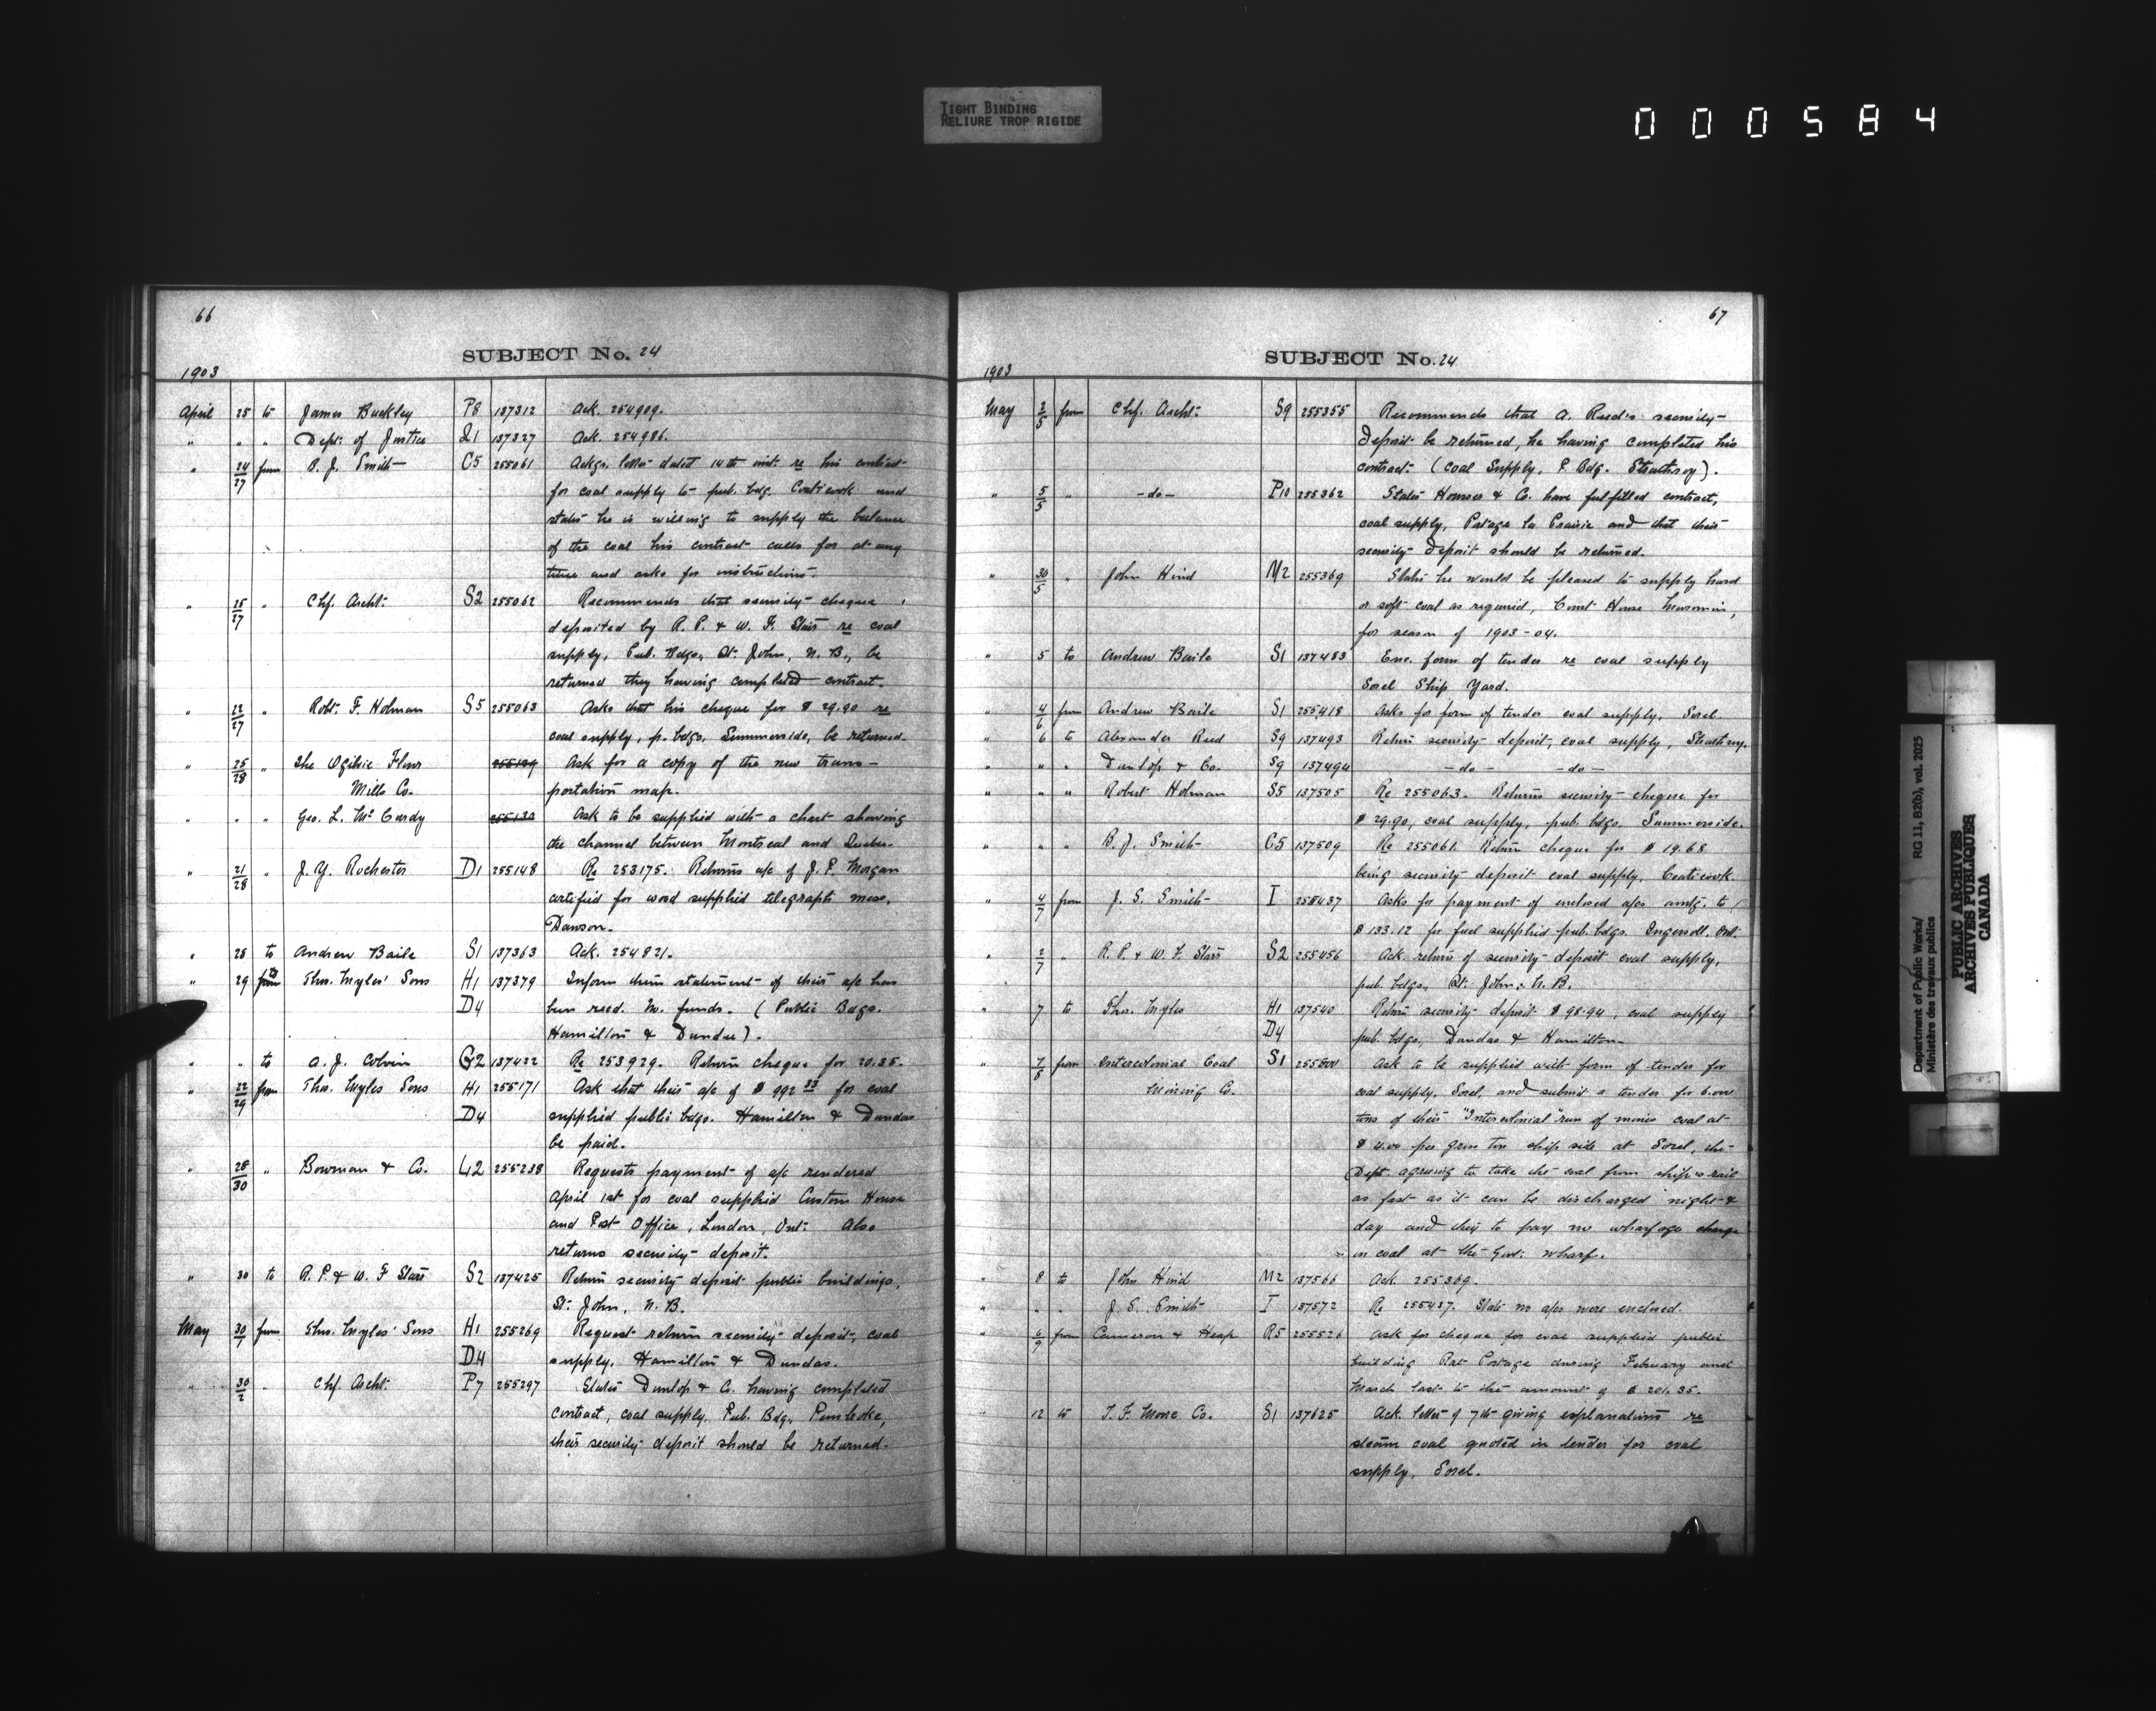 TIGHT BINDING
RELIURE TROP RIGIDE
000584
66
SUBJECT No. 24
1903
April 25 to James Buckley P8 137312 Ack. 254909.
" " " Dept. of Justice 137327 Ack. 254986.
" 24/27 from B. J. Smith C5 255061 Ackgs. letter dated 14th inst. re his contract
for coal supply to pub. bdg. Coaticook and
states he is willing to supply the balance
of the coal his contract calls for at any
time and asks for instructions.
" 25/27 " Chf. Archt. S2 255062 Recommends that security cheque
deposited by R. P. & W. F. Starr re coal
supply, Pub. Bdgs., St. John, N. B., be
returned they having completed contract.
" 22/27 " Robt. F. Holman S5 255063 Asks that his cheque for $ 29.90 re
coal supply, p. bdgs. Summerside, be returned.
" 25/28 " The Ogilvie Flour 255129 Ask for a copy of the new trans-
Mills Co. portation map.
" " " Geo. L. McCurdy 255130 Ask to be supplied with a chart showing
the channel between Montreal and Quebec.
" 21/28 " J. Y. Rochester D1 255148 Re 253175. Returns a/c of J. P. Morgan
certified for wood supplied telegraph mess.
Dawson.
" 28 to Andrew Baile S1 137363 Ack. 254821.
" 29 to from Thos. Myles' Sons H1 137379 Inform them statement of their a/c has
D4 been recd. No funds. (Public Bdgs.
Hamilton & Dundas).
" " to A. J. Colvin G2 137422 Re 253929. Return cheque for 20.35.
" 22/29 from Thos. Myles Sons H1 255171 Ask that their a/c of $ 992 33 for coal
D4 supplied public bdgs. Hamilton & Dundas
be paid.
" 28/30 " Bowman & Co. L2 255238 Requests payment of a/c rendered
April 1st for coal supplied Custom House
and Post Office, London, Ont. Also
returns security deposit.
" 30 to R. P. & W. F Starr S2 137425 Return security deposit public buildings,
St. John, N. B.
May 30/1 from Thos. Myles' Sons H1 255269 Request return security deposit, coal
D4 supply, Hamilton & Dundas.
" 30/2 " Chf. Archt. P7 255297 States Dunlop & Co. having completed
contract, coal supply, Pub. Bdg. Pembroke,
their security deposit should be returned.
67
SUBJECT No. 24
1903
May 2/5 from Chf. Archt. S9 255355 Recommends that A. Reed's security
deposit be returned, he having completed his
contract (Coal Supply, P. Bdg. Strathroy).
" 5/5 " -do- P10 255362 States & Co. have fulfilled contract,
coal supply, Portage la Prairie and that their
security deposit should be returned.
" 30/5 " John Hind M2 255369 States he would be pleased to supply hard
or soft coal as required, Court House
for season of 1903-04.
" 5 to Andrew Baile S1 137483 Enc. form of tender re coal supply
Sorel Ship Yard.
" 4/6 from Andrew Baile S1 255418 Asks for form of tender coal supply, Sorel.
" 6 to Alexander Reed S9 137493 Return security deposit, coal supply, Strathroy.
" " " Dunlop & Co. S9 137494 -do- -do-
" " " Robert Holman S5 137505 Re 255063. Returns security cheque for
$ 29.90, coal supply, pub. bdgs. Summerside.
" " " B. J. Smith C5 137509 Re 255061. Return cheque for $ 19.68
being security deposit coal supply, Coaticook.
" 4/7 from J. S. Smith I 255437 Asks for payment of enclosed a/cs amtg. to
$ 133.12 for fuel supplied pub. bdgs. Ingersoll, Ont.
" 2/7 " R. P. & W. F. Starr S2 255456 Ack. return of security deposit coal supply,
pub. bdgs., St. John, N. B.
" 7 to Thos. Myles H1 137540 Return security deposit $ 98.94, coal supply
D4 pub. bdgs., Dundas & Hamilton.
" 7/8 from Intercolonial Coal S1 255500 Ask to be supplied with form of tender for
Mining Co. coal supply, Sorel, and submit a tender for 6.000
tons of their "Intercolonial" run of mines coal at
$ 4.00 per gross ton ship side at Sorel, the
Dept. agreeing to take the coal from ship's rail
as fast as it can be discharged night &
day and they to pay no wharfage charge
on coal at the Govt. wharf.
" 8 to John Hind M2 137566 Ack. 255369.
" " " J. S. Smith I 137572 Re 255437. State no a/cs were enclosed.
" 6/9 from Cameron & Heap R5 255526 Ask for cheque for coal supplied public
building Rat Portage during February and
March last to the amount of $ 201.35.
" 12 to T. F. Moore Co. S1 137625 Ack. letter of 7th giving explanations re
steam coal quoted in tender for coal
supply, Sorel.
Department of Public Works/
Ministère des travaux publics
RG 11, B2(b), vol. 2025
PUBLIC ARCHIVES
ARCHIVES PUBLIQUES
CANADA